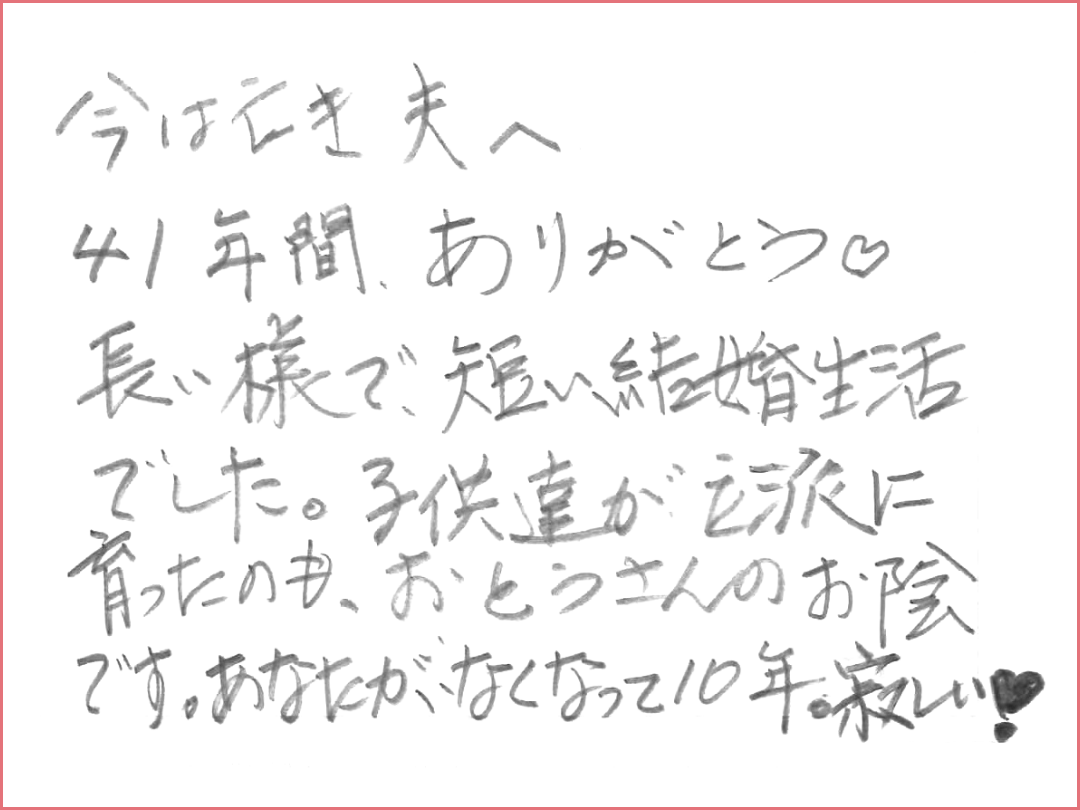 今は亡き夫へ
41年間、ありがとう♡
長い様で、短い結婚生活
でした。子供達が立派に
育ったのも、おとうさんのお陰
です。あなたが、なくなって10年。寂しい♥